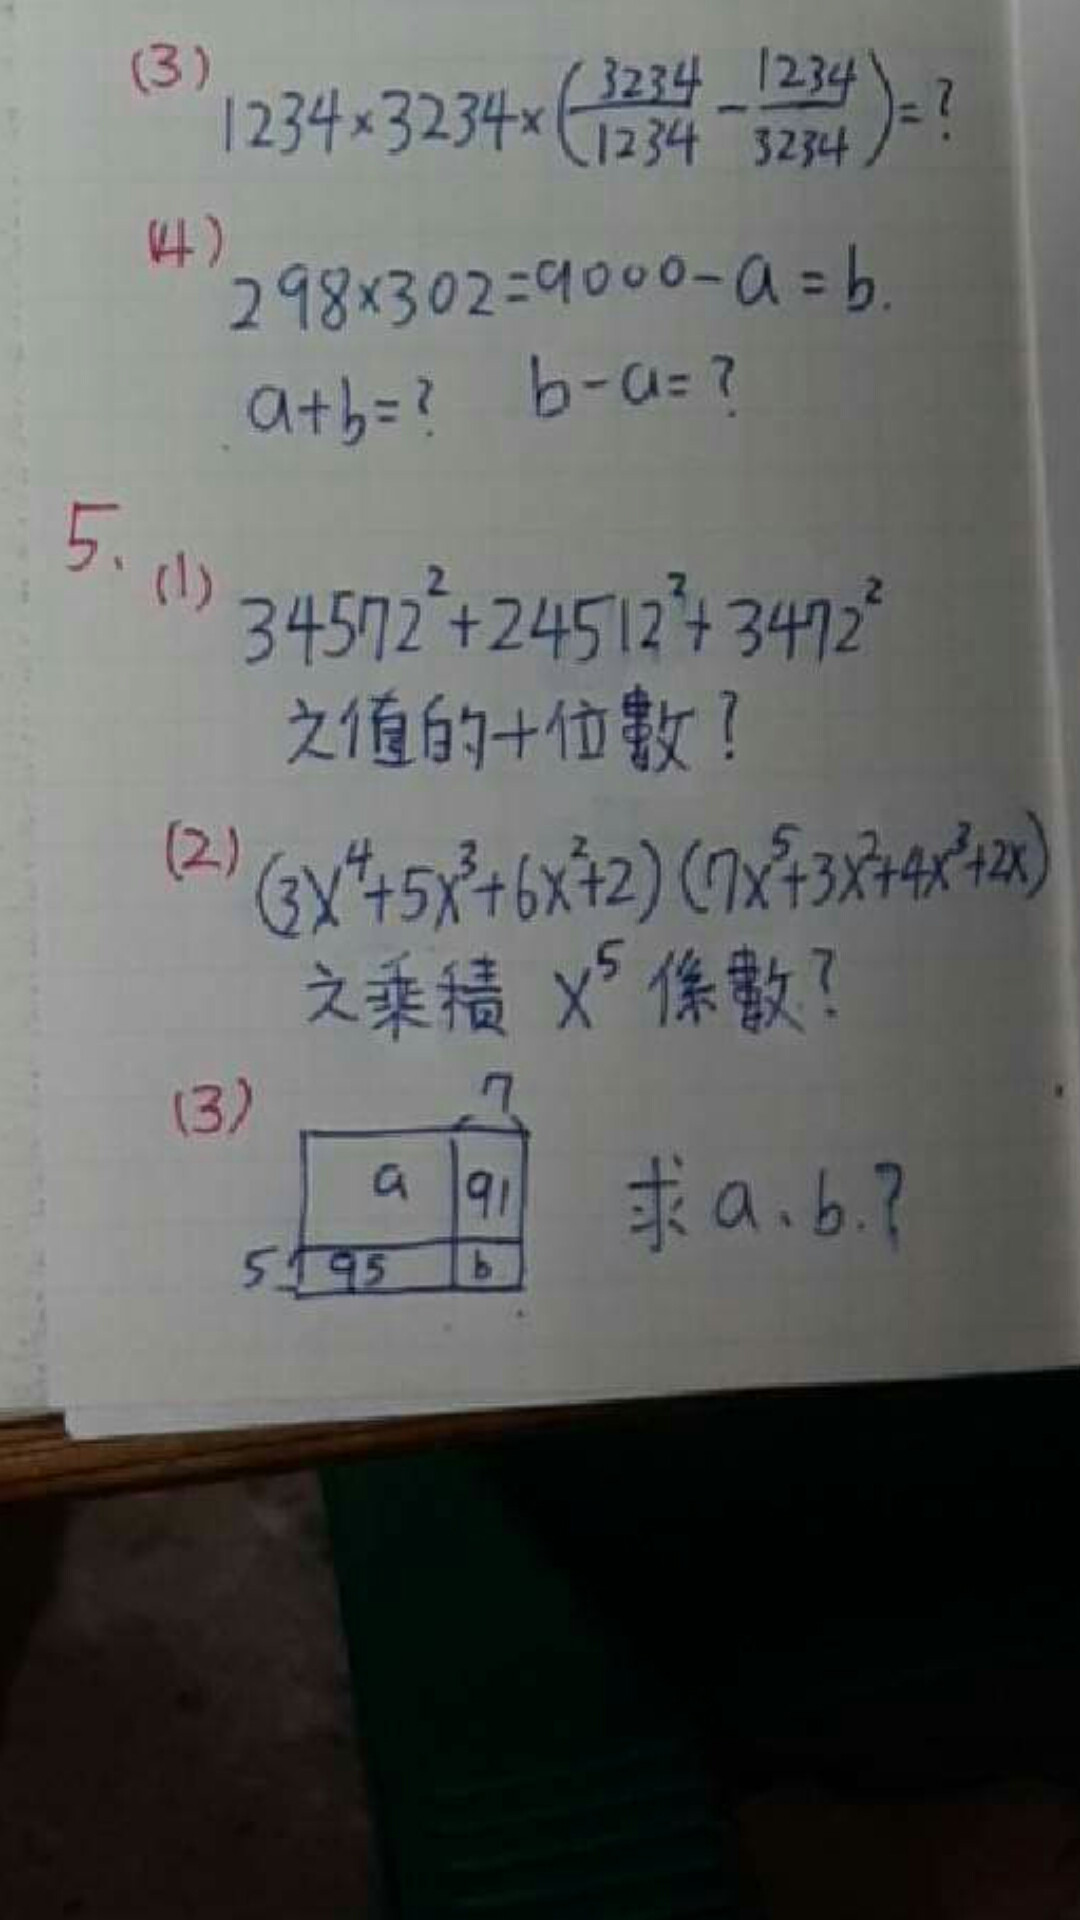 (3) 1234×3234×(3234/1234 - 1234/3234)=?
(4) 298×302=9000-a=b.
a+b=? b-a=?
5. (1) 34572²+24512²+3472²
之值的十位數?
(2) (3x⁴+5x³+6x²+2)(7x⁵+3x²+4x³+2x)
之乘積 x⁵ 係數?
(3) 7
a 91
5 95 b
求a、b.?